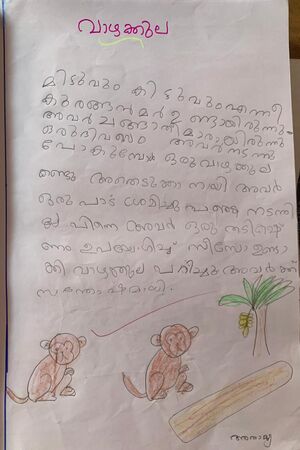 വാഴക്കുല
മിടുവും കിട്ടുവുംഎന്നീ
കുരങ്ങൻമാർ ഉണ്ടായിരുന്നു
അവർ ചങ്ങാതിമാരായിരുന്നു
ഒരുദിവസം അവർ നടന്നു
പോകുമ്പോൾ ഒരുവാഴക്കുല
കണ്ടു അതെടുത്താനായി അവർ
ഒരു പാട് ശ്രമിച്ചു പക്ഷെ നടന്നി
ല്ല പിന്നെ അവർ ഒരു തടികഷ്
ണം ഉപയോഗിച്ച് സീസോ ഉണ്ടാ
ക്കി വാഴക്കുല പറിച്ചു അവർക്ക്
സന്തോഷമായി.